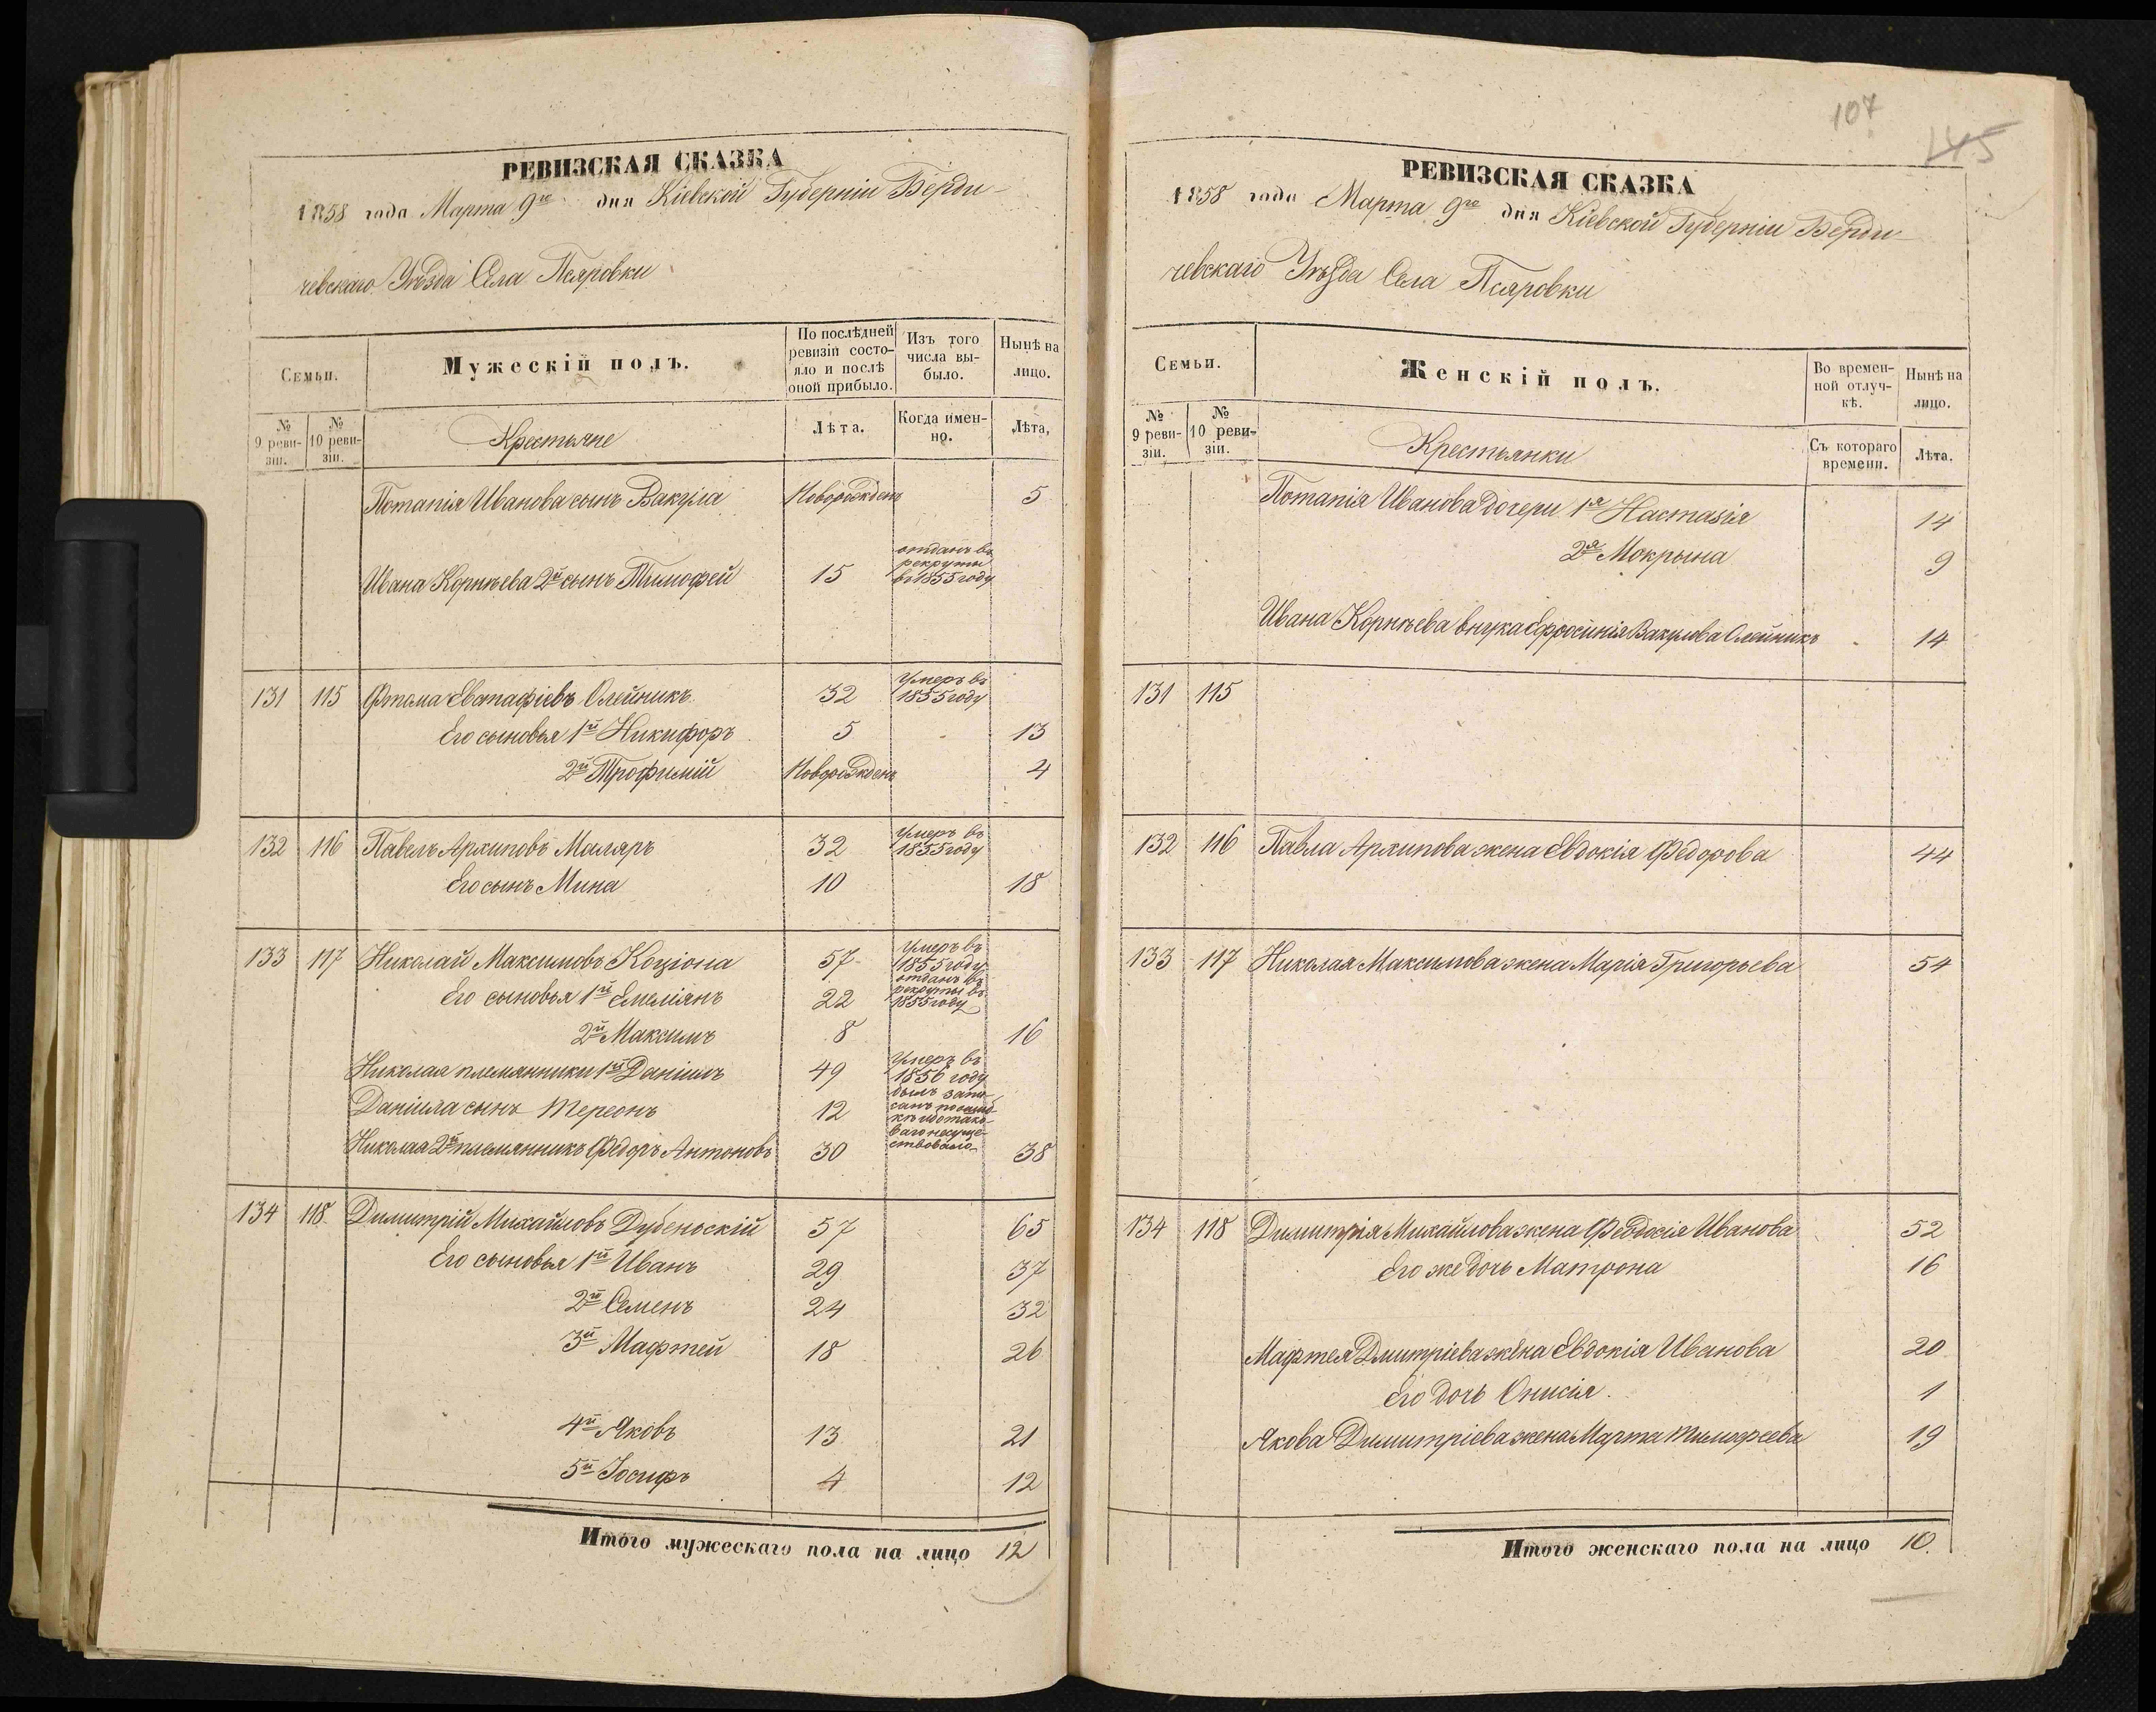 РЕВИЗСКАЯ СКАЗКА
1858 года Марта 9го дня Кіевской Губерніи Берди-
чевскаго Уѣзда Села Псяровки
Семьи.
Мужескій полъ.
По послѣдней ревизіи состояло и послѣ оной прибыло.
Изъ того числа выбыло.
Нынѣ на лицо.
№ 9 ревизіи.
№ 10 ревизіи.
Крестьяне
Лѣта.
Когда именно.
Лѣта,
Потапія Иванова сынъ Вакула Новорожденъ 5
Ивана Корнѣева 2й сынъ Тимофей 15 отданъ въ рекруты въ 1855 году
131 115 Фтома Евстафіевъ Олейникъ 32 умеръ въ 1855 году
Его сыновья 1й Никифоръ 5 13
2й Трофимій Новорожденъ 4
132 116 Павелъ Архиповъ Маляръ 32 умеръ въ 1855 году
Его сынъ Мина 10 18
133 117 Николай Максимовъ Коціона 57 умеръ въ 1855 году
Его сыновья 1й Емеліянъ 22 отданъ въ рекруты въ 1855 году
2й Максимъ 8 16
Николая племянники 1й Даніилъ 49 умеръ въ 1856 году
Даніила сынъ Тереонъ 12 былъ запи-
санъ по ошиб-
кѣ ибо тако-
ваго несуще-
ствовало
Николая 2й племянникъ Федоръ Антоновъ 30 38
134 118 Димитрій Михайловъ Дубеноскій 57 65
Его сыновья 1й Иванъ 29 37
2й Семенъ 24 32
3й Мафтей 18 26
4й Яковъ 13 21
5й Іосифъ 4 12
Итого мужескаго пола на лицо 12
107
145
РЕВИЗСКАЯ СКАЗКА
1858 года Марта 9го дня Кіевской Губерніи Берди-
чевскаго Уѣзда Села Псяровки
Семьи.
Женскій полъ.
Во временной отлучкѣ.
Нынѣ на лицо.
№ 9 ревизіи.
№ 10 ревизіи.
Крестьянки
Съ котораго времени.
Лѣта.
Потапія Иванова дочери 1я Настазія 14
2я Мокрына 9
Ивана Корнѣева внука Ефросинія Вакулова Олейникъ 14
131 115
132 116 Павла Архипова жена Евдокія Федорова 44
133 117 Николая Максимова жена Марія Григорьева 54
134 118 Димитрія Михайлова жена Феодосія Иванова 52
Его же дочь Матрона 16
Мафтея Дмитріева жена Евдокія Иванова 20
Его дочь Онисія 1
Якова Димитріева жена Марта Тимофеева 19
Итого женскаго пола на лицо 10.